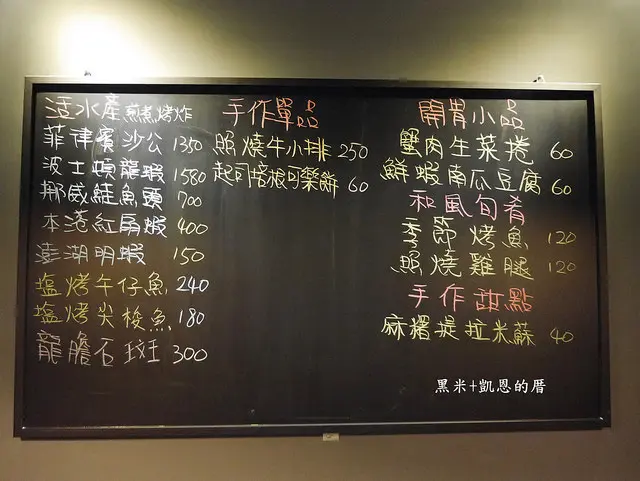 活水產煎煮烤炸
菲律賓沙公 1350
波士頓龍蝦 1580
挪威鮭魚頭 700
本港紅扇蝦 400
澎湖明蝦 150
塩烤午仔魚 240
塩烤尖梭魚 180
龍膽石斑 300
手作單品
照燒牛小排 250
起司培根可樂餅 60
開胃小品
蟹肉生菜捲 60
鮮蝦南瓜豆腐 60
和風旬肴
季節烤魚 120
照燒雞腿 120
手作甜點
麻糬提拉米蘇 40
黑米+凱恩的厝